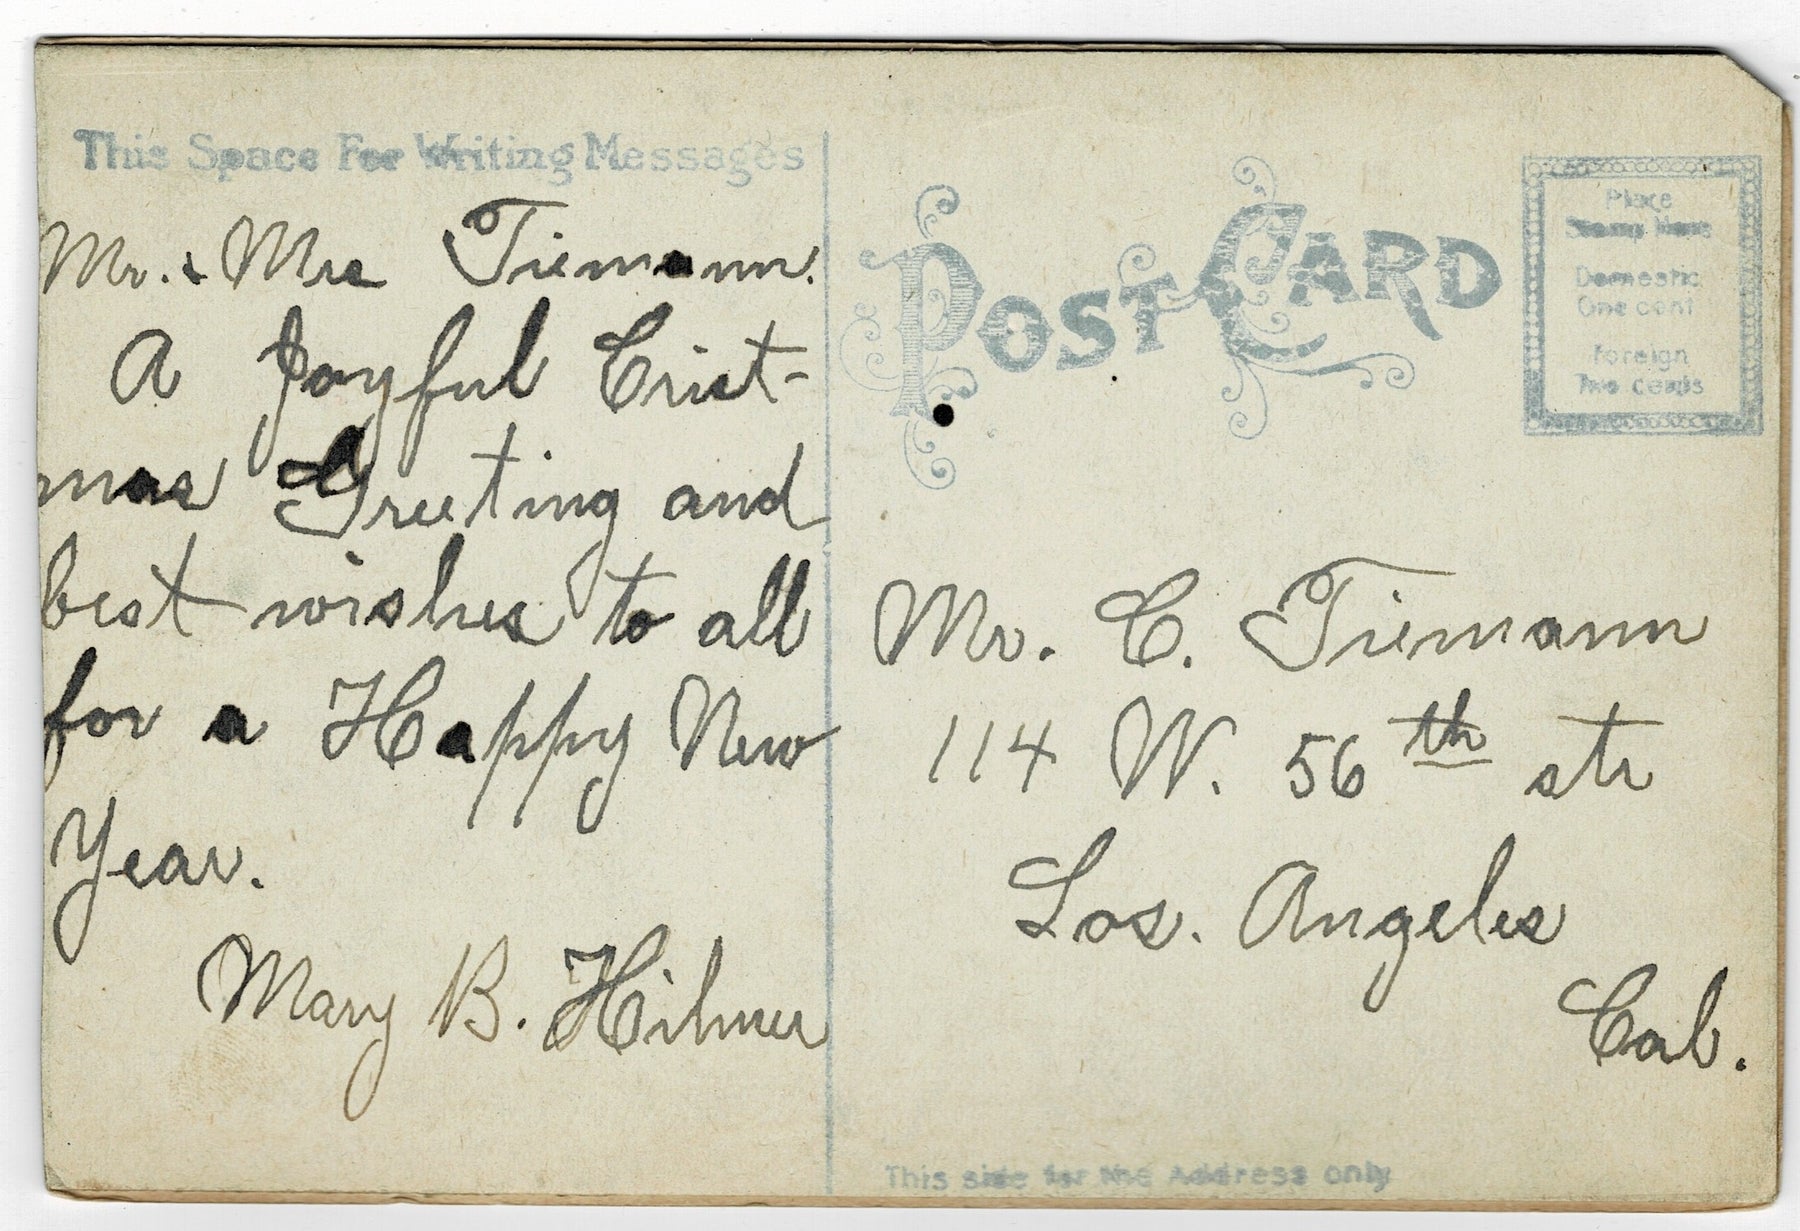 This Space For Writing Messages
Mr. & Mrs Tiemann.
A Joyful Crist-
mas Greeting and
best wishes to all
for a Happy New
Year.
Mary B. Hilmer
POST CARD
Place
Stamp Here
Domestic
One cent
Foreign
Two cents
Mr. C. Tiemann
114 W. 56th str
Los. Angeles
Cal.
This side for the Address only